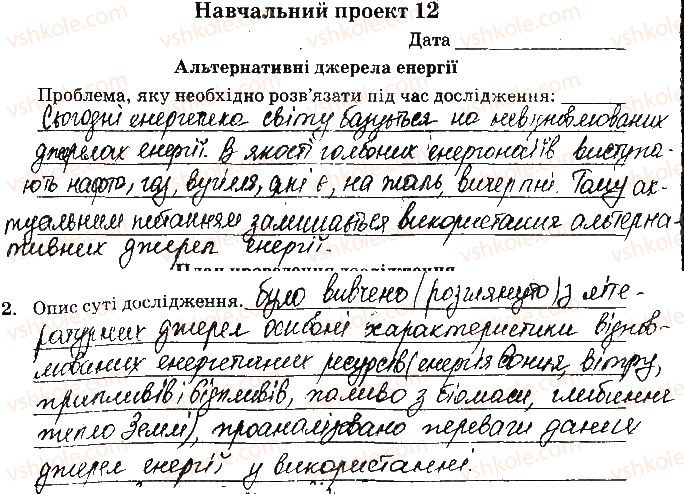 Навчальний проект 12
Дата
Альтернативні джерела енергії
Проблема, яку необхідно розв'язати під час дослідження:
Сьогодні енергетика світу базується на невідновлюваних
джерелах енергії. В якості головних енергоносіїв виступа-
ють нафта, газ, вугілля, які є, на жаль, вичерпні. Тому ак-
туальним питанням залишається використання альтерна-
тивних джерел енергії.
План проведення дослідження
2. Опис суті дослідження. було вивчено (розглянуто) з літе-
ратурних джерел основні характеристики віднов-
люваних енергетичних ресурсів (енергія Сонця, вітру,
припливів і відпливів, паливо з біомаси, глибинне
тепло Землі), проаналізовано переваги даних
джерел енергії у використанні.